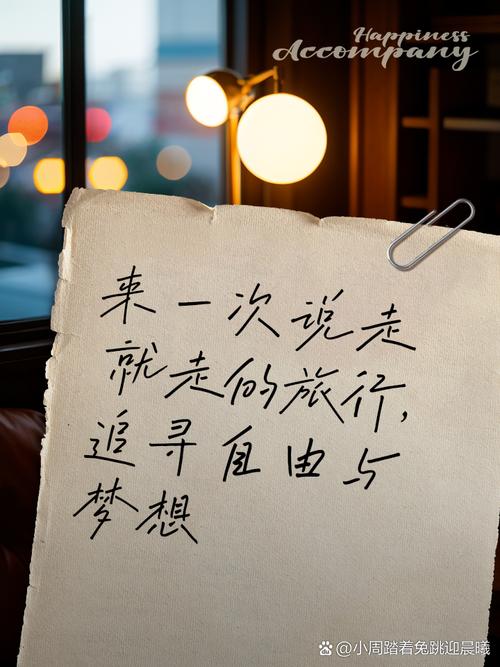 Happiness
Accompany
来一次说走
就走的旅行,
追寻自由与
梦想
@小周踏着兔跳迎晨曦